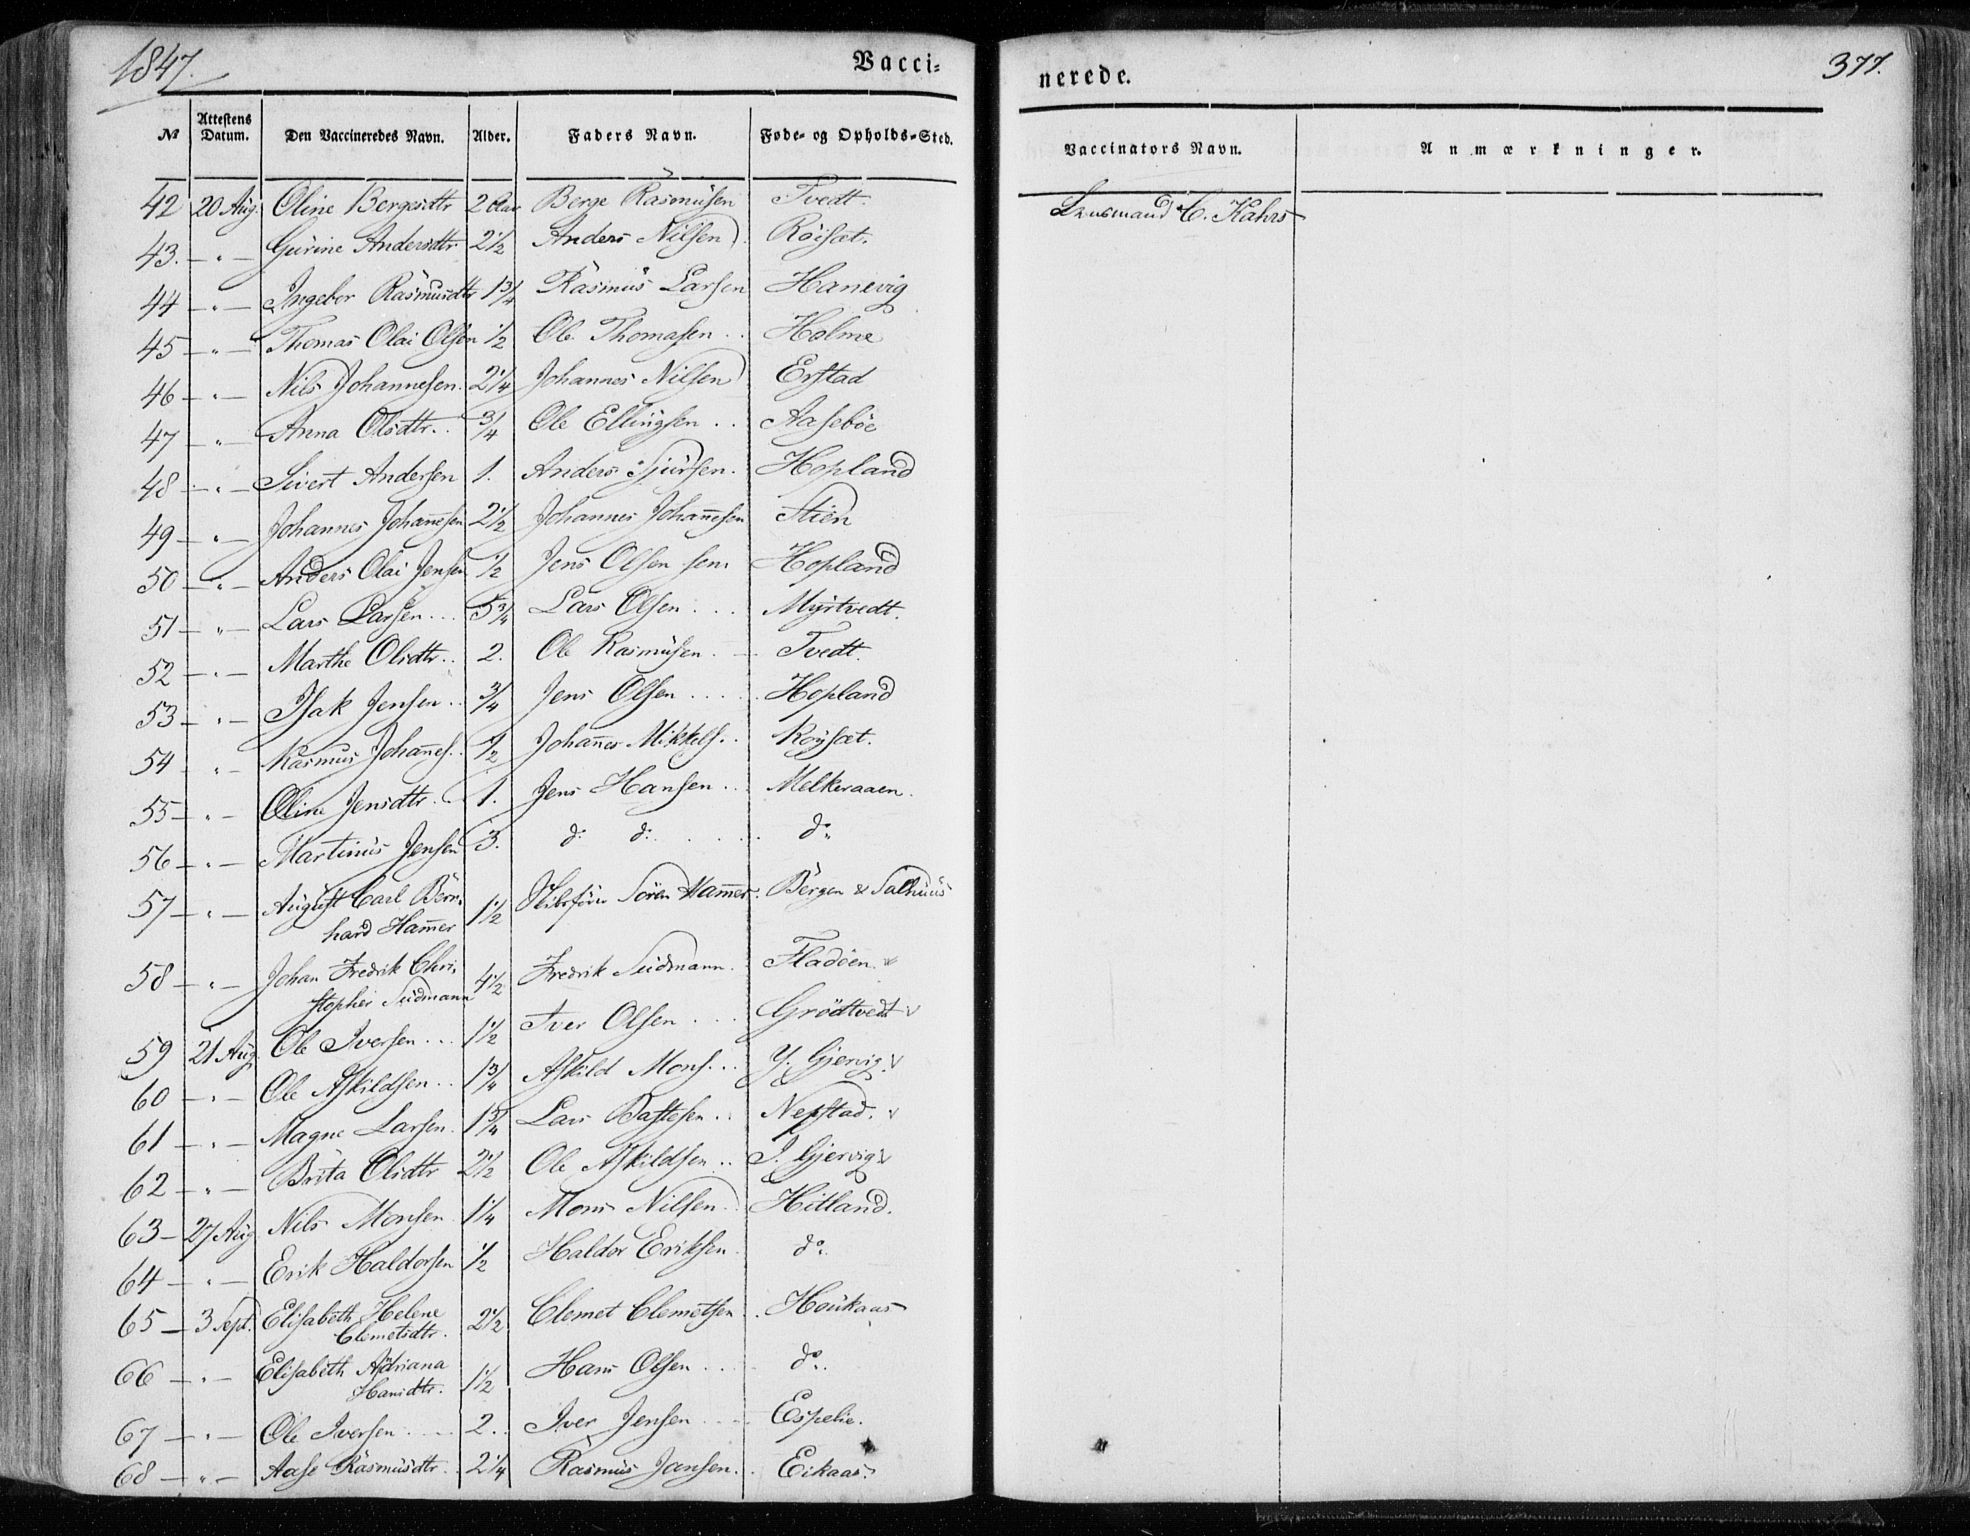 1847.
Vacci=
nerede.
377.
No Attestens Datum. Den Vaccineredes Navn. Alder. Faders Navn. Føde- og Opholds-Sted. Vaccinators Navn. Anmærkninger.
42 20 Aug. Oline Bergesdtr 2 Aar Berge Rasmusen Tvedt. Lensmand C. Kahrs
43. — " — Gurine Andersdtr. 2 1/2 Anders Nilsen Röisæt.
44 — " — Ingebor Rasmusdtr 1 3/4 Rasmus Larsen Hanevig
45 — " — Thomas Olai Olsen 1/2 Ole Thomasen .. Holme
46 — " — Nils Johannesen. 2 1/4 Johannes Nilsen Erstad
47 — " Anna Olsdtr.. 3/4 Ole Ellingsen .. Aaseböe
48 — " — Sivert Andersen 1. Anders Sjursen. Hopland
49 — " — Johannes Johañesen 2 1/2 Johannes Johañesen Stien
50 — " — Anders Olai Jensen 1/2 Jens Olsen sen. Hopland
51 — " — Lars Larsen ... 5 3/4 Lars Olsen ... Myrtvedt.
52 — " — Marthe Olsdtr.. 2. Ole Rasmusen. — Tvedt.
53 — " — Isak Jensen .. 3/4 Jens Olsen ..... Hopland
54 — " — Rasmus Johañes.. 1/2 Johañes Mikkels.. Röysæt.
55 — " — Oline Jensdtr... 1. Jens Hansen ... Melkeraaen.
56 — " — Martinus Jensen 3. do do .... do
57 — " — August Carl Bern-
hard Ham̄er 1 1/2 Sören Ham̄er. Bergen & Salhuus
58 — " — Johan Fredrik Chri-
stopher Südmann 4 1/2 Fredrik Südmann. Fladöen.
59 21 Aug. Ole Iversen ... 1 1/2 Iver Olsen ... Grödtvedt
60 — " — Ole Askildsen .. 1 3/4 Askild Mons... Y. Gjervig.
61 — " — Magne Larsen. 1 3/4 Lars Bastesen.. Nepstad.
62 — " — Brita Olsdtr 2 1/2 Ole Askildsen .. I. Gjervig
63 — 27 Aug Nils Monsen. 1 1/4 Mons Nilsen. Hitland.
64 — " — Erik Haldorsen 1/2 Haldor Eriksen. do.
65 — 3 Sept. Elisabeth Helene
Clemetsdtr. 2 1/2 Clemet Clemetsen. Houkaas
66 — " — Elisabeth Adriana
Hansdtr. 1 1/2 Hans Olsen .... do.
67 — " — Ole Iversen .... 2.. Iver Jensen .... Espelie.
68 — " — Aase Rasmusdtr.. 2 1/4 Rasmus Jansen.. Eikaas.